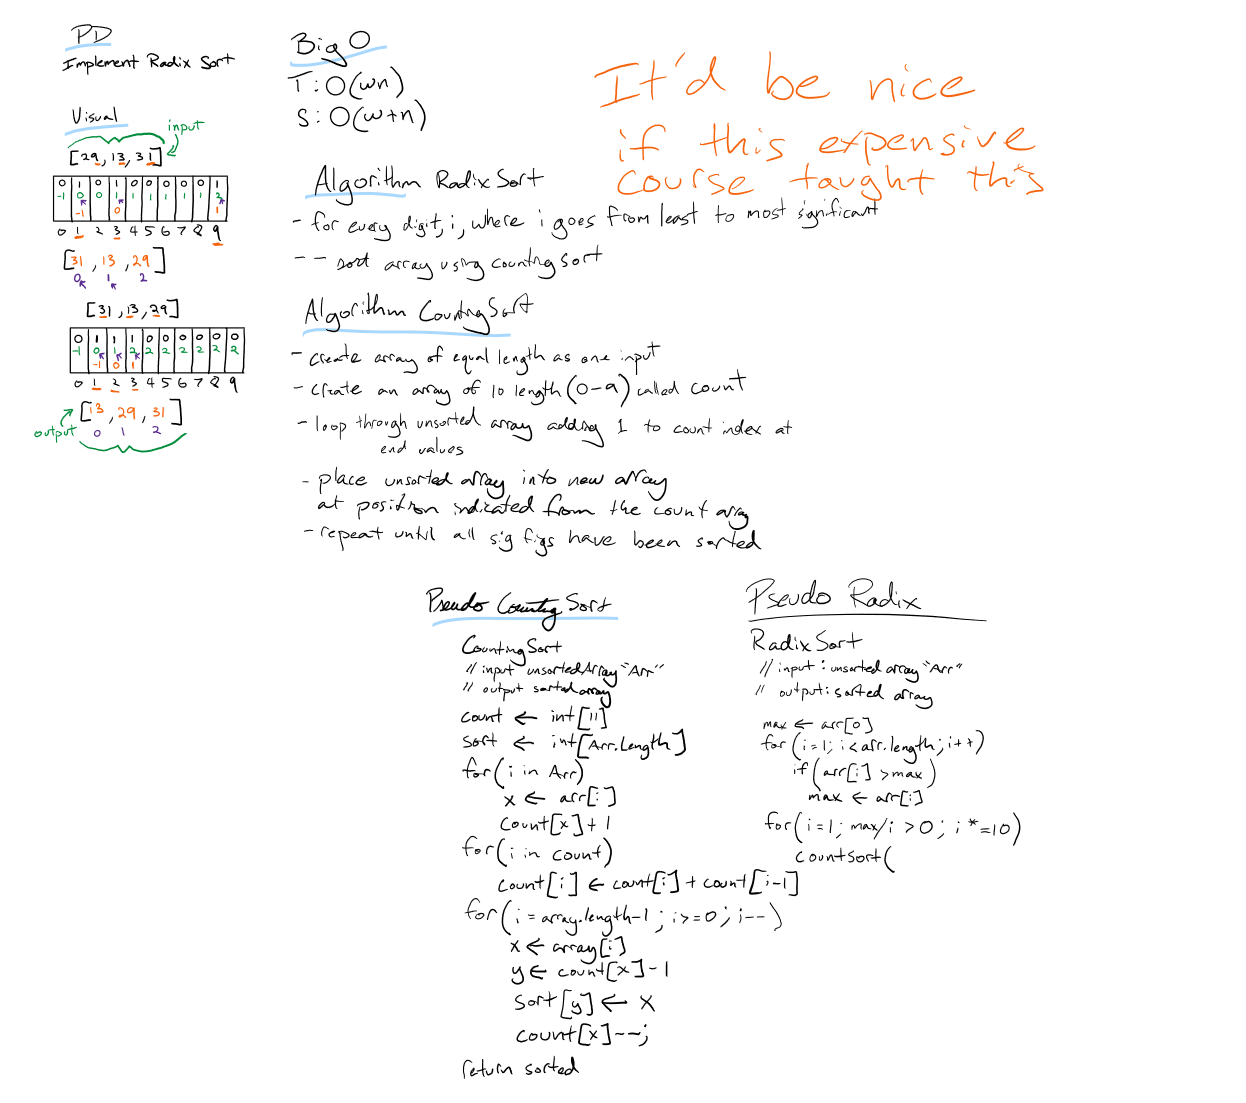 PD
Implement Radix Sort
Visual
input
[29, 13, 31]
0 1 0 1 0 0 0 0 0 1
-1 0 0 1 1 1 1 1 1 2
-1 0 1
0 1 2 3 4 5 6 7 8 9
[31, 13, 29]
0 1 2
[31, 13, 29]
0 1 1 1 0 0 0 0 0 0
-1 0 1 2 2 2 2 2 2 2
-1 0 1
0 1 2 3 4 5 6 7 8 9
[13, 29, 31]
output
0 1 2
Big O
T: O(wn)
S: O(w+n)
It'd be nice
if this expensive
course taught this
Algorithm Radix Sort
- for every digit, i, where i goes from least to most significant
- - sort array using counting sort
Algorithm Counting Sort
- create array of equal length as one input
- create an array of 10 length (0-9) called count
- loop through unsorted array adding 1 to count index at
end values
- place unsorted array into new array
at position indicated from the count array
- repeat until all sig figs have been sorted
Pseudo Counting Sort
Counting Sort
// input unsortedArray "Arr"
// output sorted array
count ← int[11]
sort ← int[Arr.Length]
for(i in Arr)
x ← arr[i]
count[x]+1
for(i in count)
count[i] ← count[i] + count[i-1]
for(i = array.length-1; i>=0; i--)
x ← array[i]
y ← count[x]-1
sort[y] ← x
count[x]--;
return sorted
Pseudo Radix
Radix Sort
// input: unsorted array "Arr"
// output: sorted array
max ← arr[0]
for(i=1; i<arr.length; i++)
if(arr[i] >max)
max ← arr[i]
for(i=1; max/i >0; i*=10)
countsort(